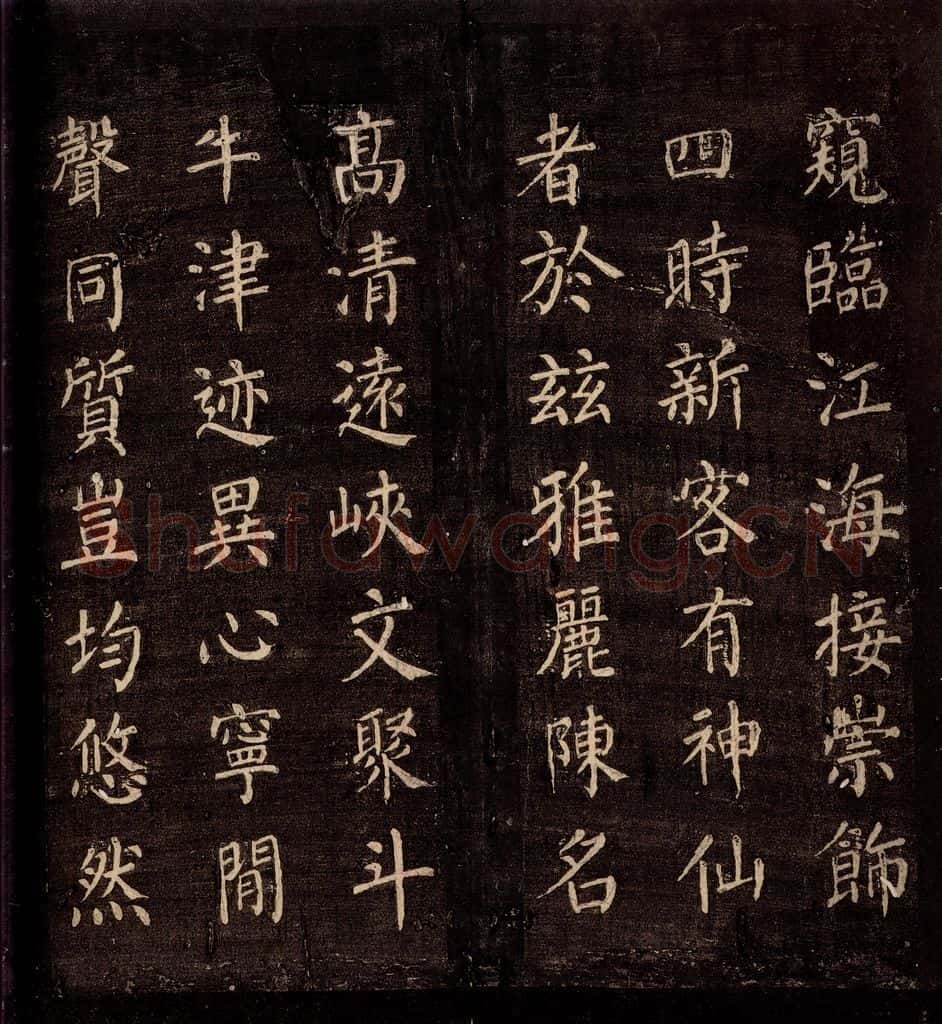 窺臨江海接崇飾
四時新客有神仙
者於茲雅麗陳名
高清遠峽文聚斗
牛津迹異心寧閒
聲同質豈均悠然
Shufawang.CN